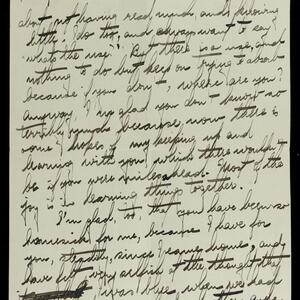 about not having read much and knowing
little. I do too, and always want to say
"what's the use?" But there is a use, and
nothing to do but keep on trying to absorb
because if you don't, where are you?
Anyway, I'm glad you don't know so
terribly much because now there is
some hope of my keeping up and
learning with you, which there wouldn't
be if you were miles ahead. Most of the
joy is in learning things together.
I'm glad, too, that you have been so
homesick for me, because I have for
you, steadily, since I came home, and
have felt very selfish at the thought that
I was blue, when we had